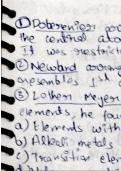 ① Dobereniers
the central ato
It was restrict
② Newland arrang
resembles 1st
③ Lother Meyer
elements, he fou
a) Elements with
b) Alkali metals
c) Transition elem